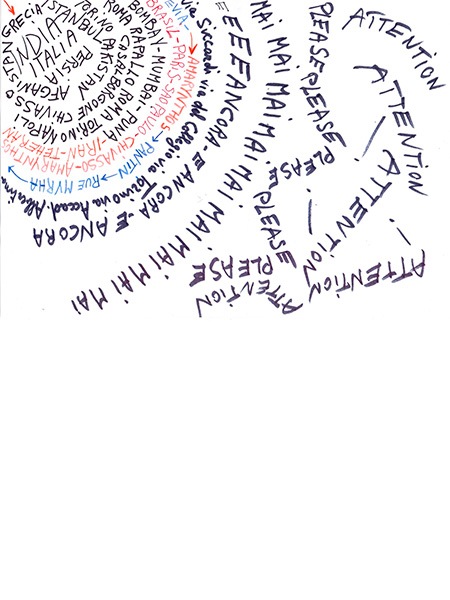 STAN GRECIA-
INDIA
ITALIA
PERSIA
AFGANI
ISTANBUL
TORINO PAKISTAN
CHIVASSO
ROMA
CASALBORGONE
NAPOLI
ROMA RAPALLO ROMA TORINO
BOMBAY-MUMBAI-PUNA
BRASIL-PARIS-SAO PAULO-CHIVASSO-IRAN-TEHERAN
EVIA-
AMARYNTHOS
AMARYNTHOS
PANTIN
RUE MYRHA
Succardi via del Collegio via Torino via Accad. Albertina
E E E E ANCORA-E ANCORA-E ANCORA
MAI MAI MAI MAI MAI MAI MAI MAI MAI MAI MAI
PLEASE-PLEASE
PLEASE
PLEASE PLEASE
PLEASE
ATTENTION
ATTENTION
ATTENTION
ATTENTION
ATTENTION
ATTENTION
ATTENTION